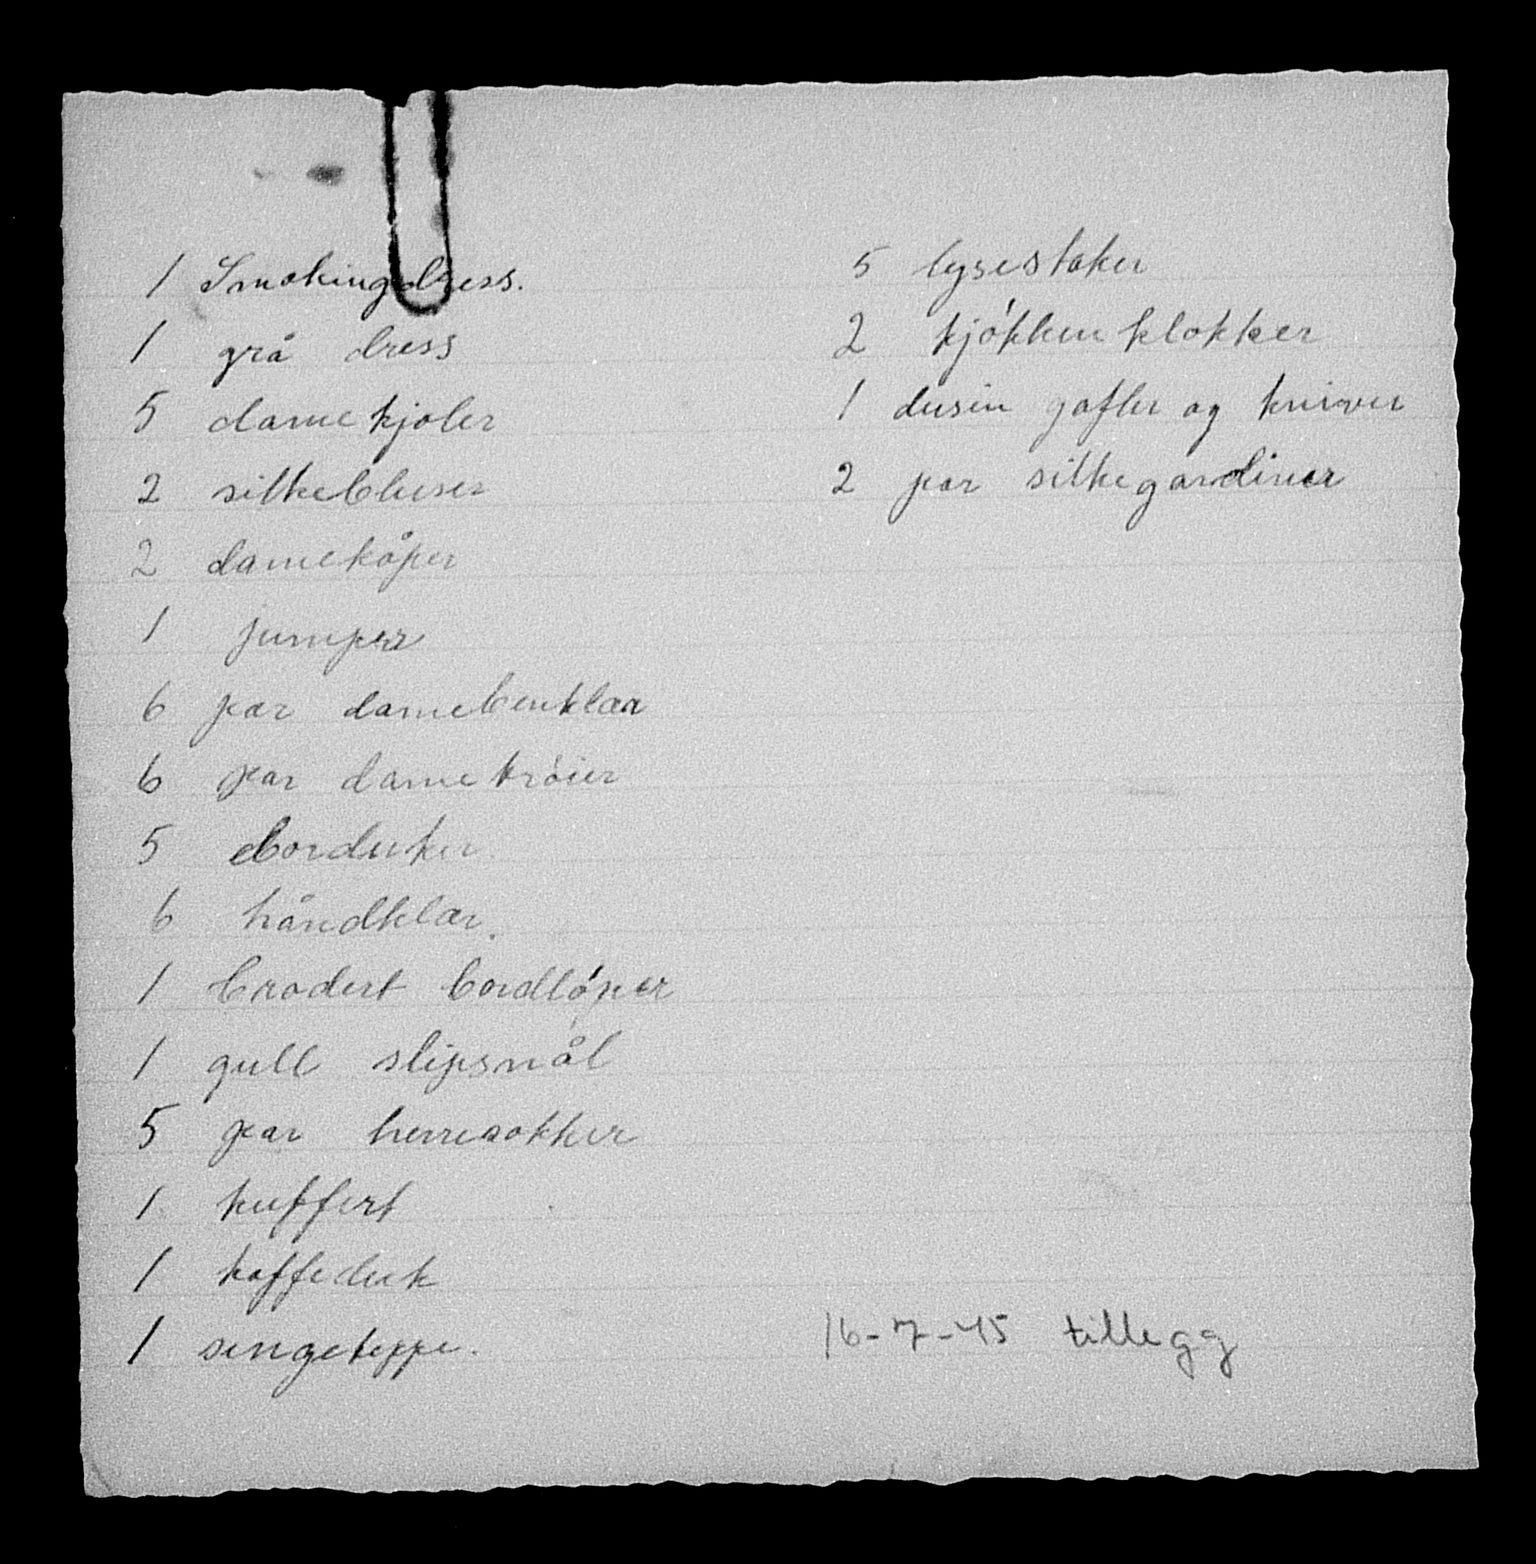 1 Smokingdress.
1 grå dress
5 damekjoler
2 silkebluser
2 damekåper
1 jumper
6 par damebenklær
6 par dametróier
5 borduker
6 håndklær.
1 brodert bordlóper
1 gull slipsnål
5 par herresokker
1 kuffert
1 kaffeduk
1 sengeteppe.
5 lysestaker
2 kjókkenklokker
1 dusin gafler og kniver
2 par silkegardiner
16-7-45 tillegg